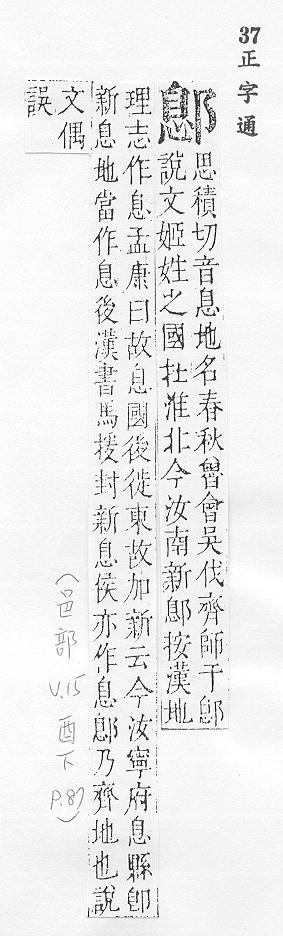 37正字通
鄎
思積切音息地名春秋魯會吳伐齊師于鄎
說文姬姓之國在淮北今汝南新鄎按漢地
理志作息孟康曰故息國後徙東故加新云今汝寧府息縣即
新息地當作息後漢書馬援封新息侯亦作息鄎乃齊地也說
文偶
誤
(邑部 V.15 酉下 P.87)